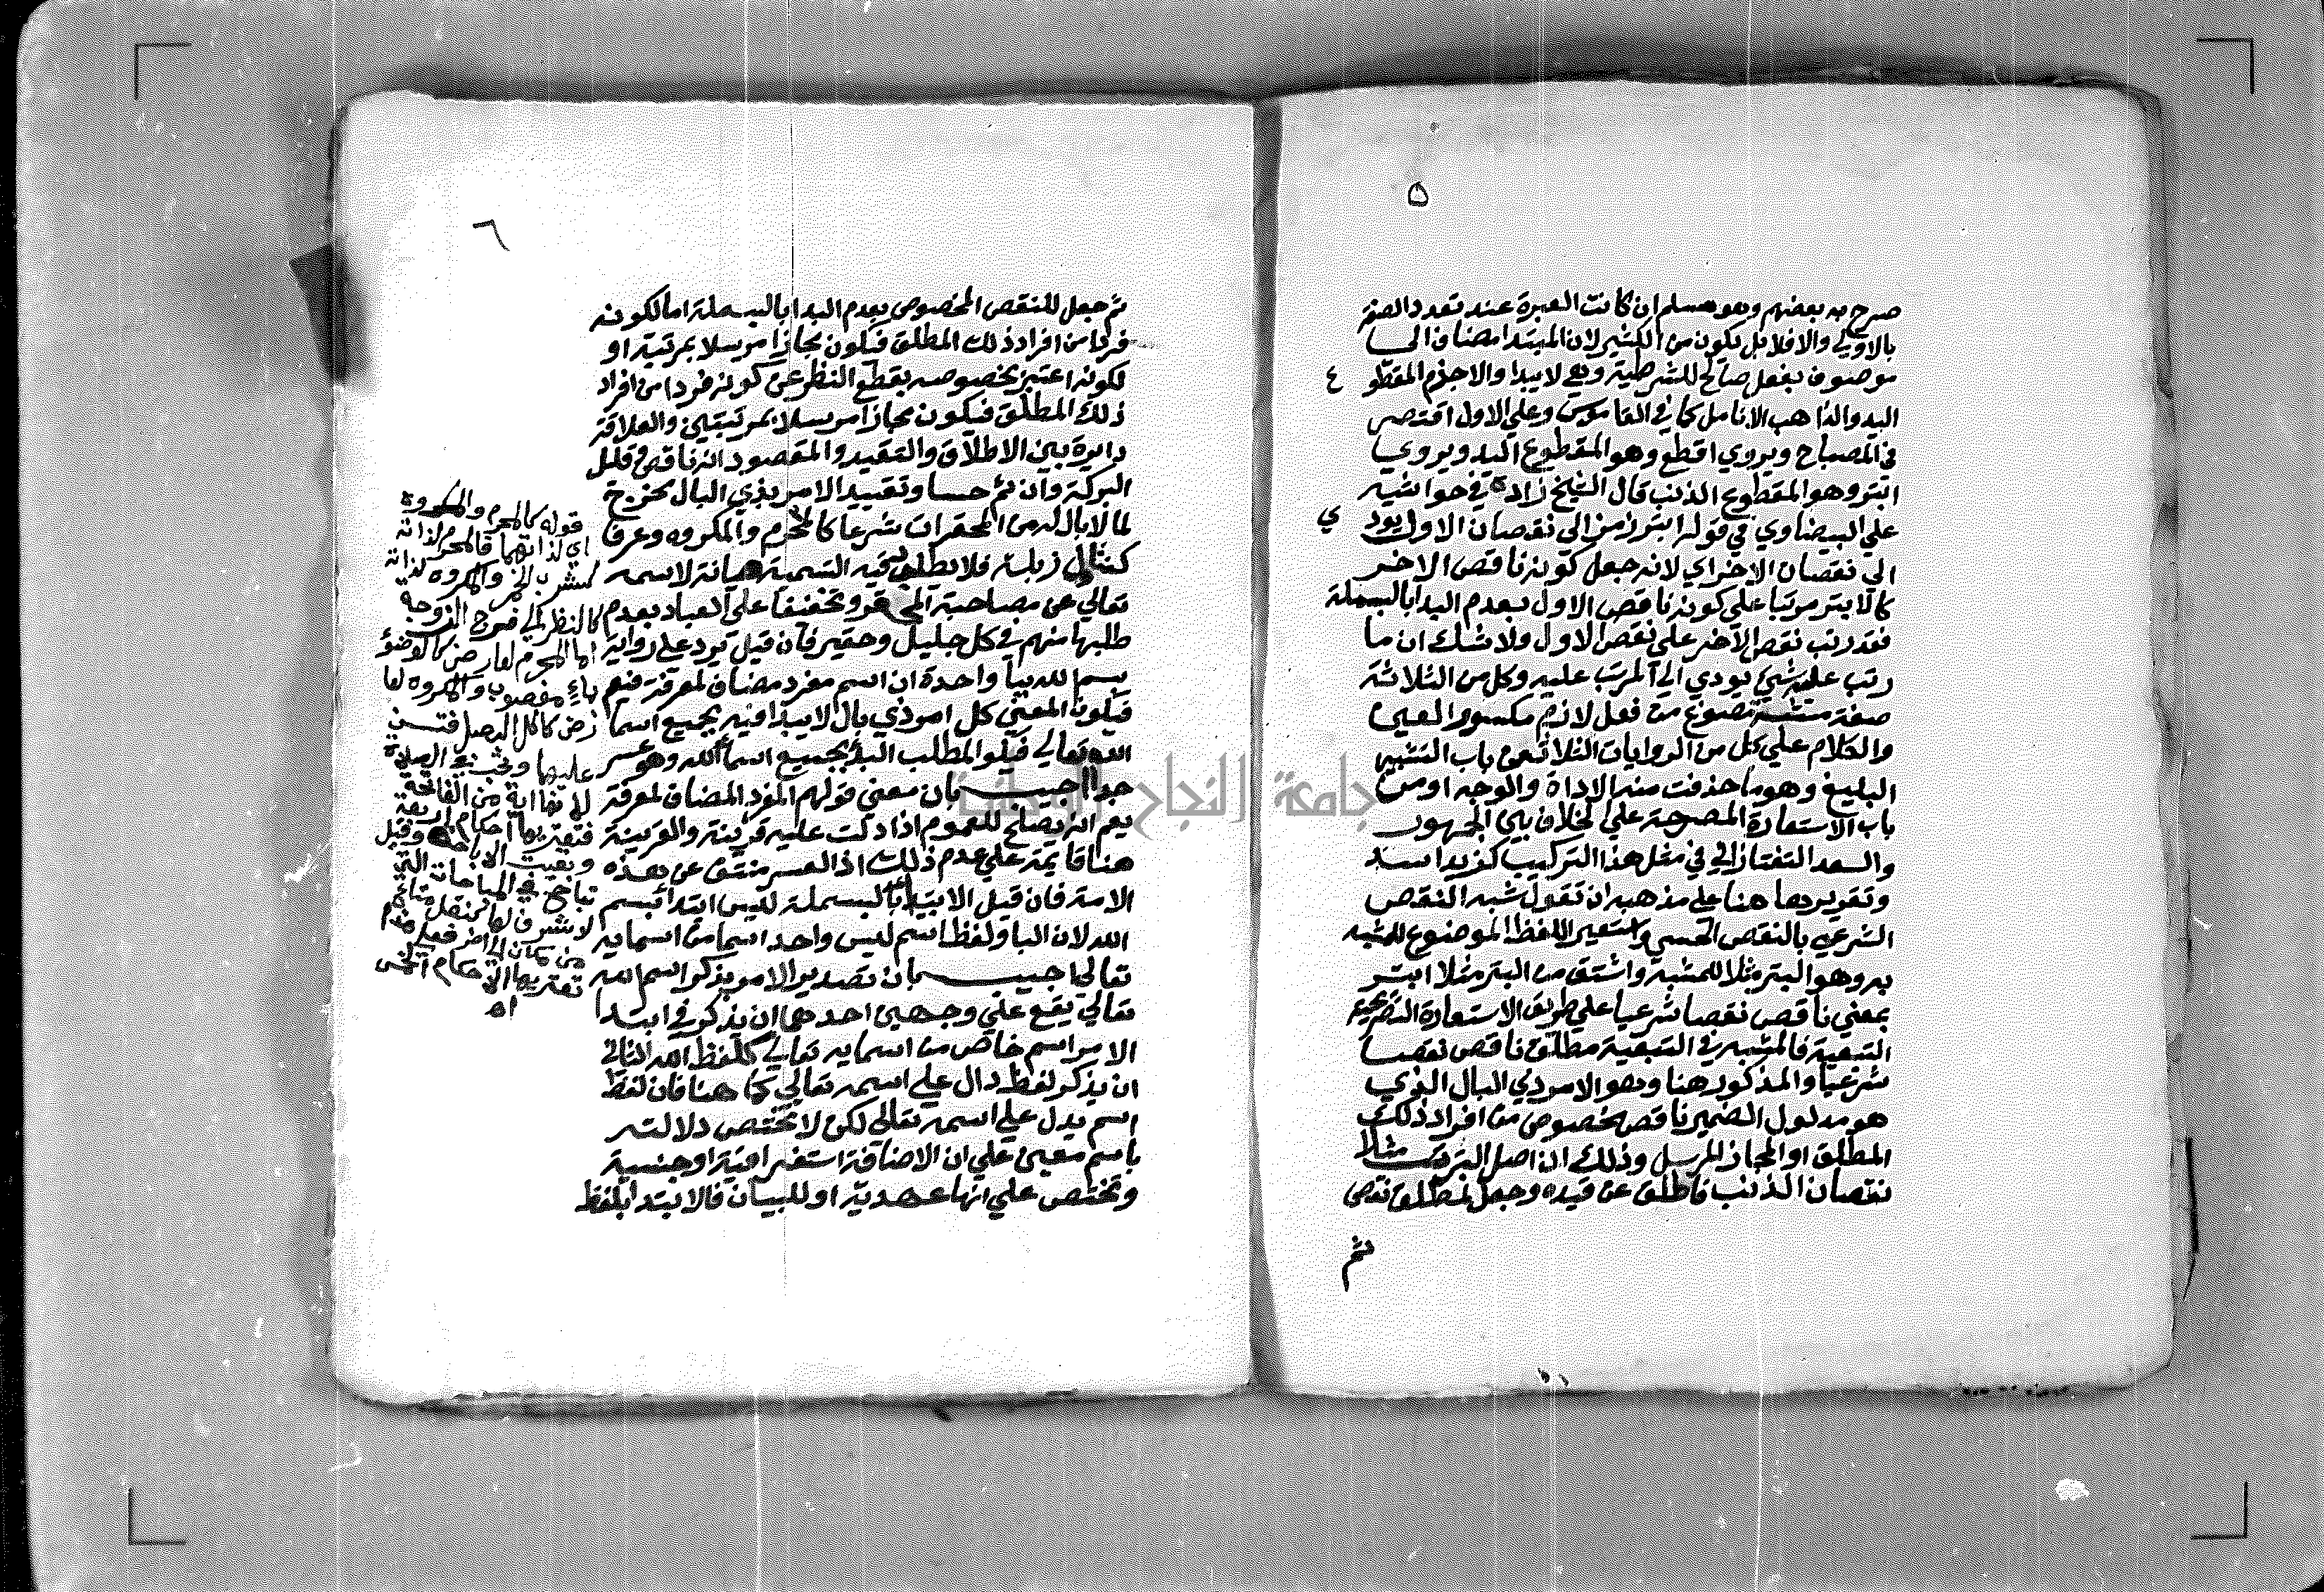 ٥
صرح به بعضهم وهو مسلم ان كانت العبرة عند تعدد الصفة
بالاولي والا فلا بل يكون من الكثير لان المبتدا مضاف الي
موصوف بفعل صالح للشرطية وهي لا يبدا والاجذم المقطو ع
اليد والذاهب الانامل كما في القاموس وعلي الاول اقتصر
في المصباح ويروي اقطع وهو المقطوع اليد ويروي
ابتر وهو المقطوع الذنب قال الشيخ زاده في حواشيه
علي البيضاوي في قوله ابتر رمز الى نقصان الاول يود ي
الي نقصان الاخر اي لانه جعل كونه ناقص الاخر
كالابتر مرتبا علي كونه ناقص الاول بعدم البدا بالبسملة
فقد رتب نقص الاخر علي نقص الاول ولا شك ان ما
رتب عليه شي يودي الي المرتب عليه وكل من الثلاثة
صفة مشبهة تصوغ من فعل لازم مكسور العين
والكلام علي كل من الروايات الثلاث من باب التشبيه
البليغ وهو ما حذفت منه الاداة والوجه او من
باب الاستعارة المصرحة علي الخلاف بين الجمهور
والسعد التفتازاني في مثل هذا التركيب كزيد اسد
وتقريرها هنا علي مذهبه ان تقول شبه النقص
الشرعي بالنقص الحسي واستعير اللفظ الموضوع للمشبه
به وهو البتر مثلا للمشبه واشتق من البتر مثلا ابتر
بمعني ناقص نقصا شرعيا علي طريق الاستعارة التصريحية
التبعية فالمشبه في التبعية مطلق ناقص نقصا
شرعيا والمذكور هنا وهو الامر ذي البال الذي
هو مدلول الضمير ناقص مخصوص من افراد ذلك
المطلق او المجاز المرسل وذلك ان اصل البتر مثلا
نقصان الذنب فاطلق عن قيده وجعل لمطلق نقص
ثم
٦
ثم جعل للنقص المخصوص بعدم البدا بالبسملة اما لكونه
فردا من افراد ذلك المطلق فيكون مجازا مرسلا بمرتبة او
لكونه اعتبر بخصوصه بقطع النظر عن كونه فردا من افراد
ذلك المطلق فيكون مجازا مرسلا بمرتبتين والعلاقة
دايرة بين الاطلاق والتقييد والمقصود انه ناقص وقليل
البركة وان تم حسا وتقييد الامر بذي البال مخرج
لما لا بال له من المحقرات شرعا كالمحرم والمكروه وعرفا
زبلة فلا يطلب فيه التسمية صيانة لاسمه
تعالي عن مصاحبة وتخفيفا علي العباد بعدم
طلبها منهم في كل جليل وحقير فان قيل يرد علي رواية
بسم الله بيا واحدة ان اسم مفرد مضاف لمعرفة فيعم
فيكون المعني كل امر ذي بال لا يبدا فيه بجميع اسما
الله تعالي فيكو المطلب البدا بجميع اسما الله وهو عسر
جدا اجيب بان معني قولهم المفرد المضاف لمعرفة
يعم انه يصلح للعموم اذا دلت عليه قرينة والقرينة
هنا قايمة علي عدم ذلك اذ العسر منتف عن هذه
الامة فان قيل الابتدا بالبسملة ليس ابتدا بسم
الله لان البا ولفظ اسم ليس واحد اسما من اسمايه
تعالي اجيب بان تصدير الامر بذكر اسم الله
تعالي يقع علي وجهين احدهما ان يذكر في ابتدا
الامر اسم خاص من اسمايه تعالي كلفظ الله الثاني
ان يذكر لفظ دال علي اسمه تعالي كما هنا فان لفظ
اسم يدل علي اسمه تعالى لكن لا تختص دلالته
باسم معين علي ان الاضافة استغراقية او جنسية
وتختص علي انها عهدية او للبيان فالابتدا بلفظ
قوله كالمحرم والمكروه
اي لذاتهما فالمحرم لذاته
كشرب الخمر والمكروه لذاته
كالنظر لفرج الزوجة
اما المحرم لعارض كالوضؤ
بماء مغصوب والمكروه لعا
رض كاكل البصل فتسن
عليهما وتجب في الصلاة
لانها اية من الفاتحة
فتعتريها احكام اربعة
وبقيت الاباحة وقيل
تباح في المباحات التي
لا شرف لها كنقل متاع
من مكان الي اخر فعلي هذا
تعتريها الاحكام الخمس
اه
جامعة النجاح الوطنية